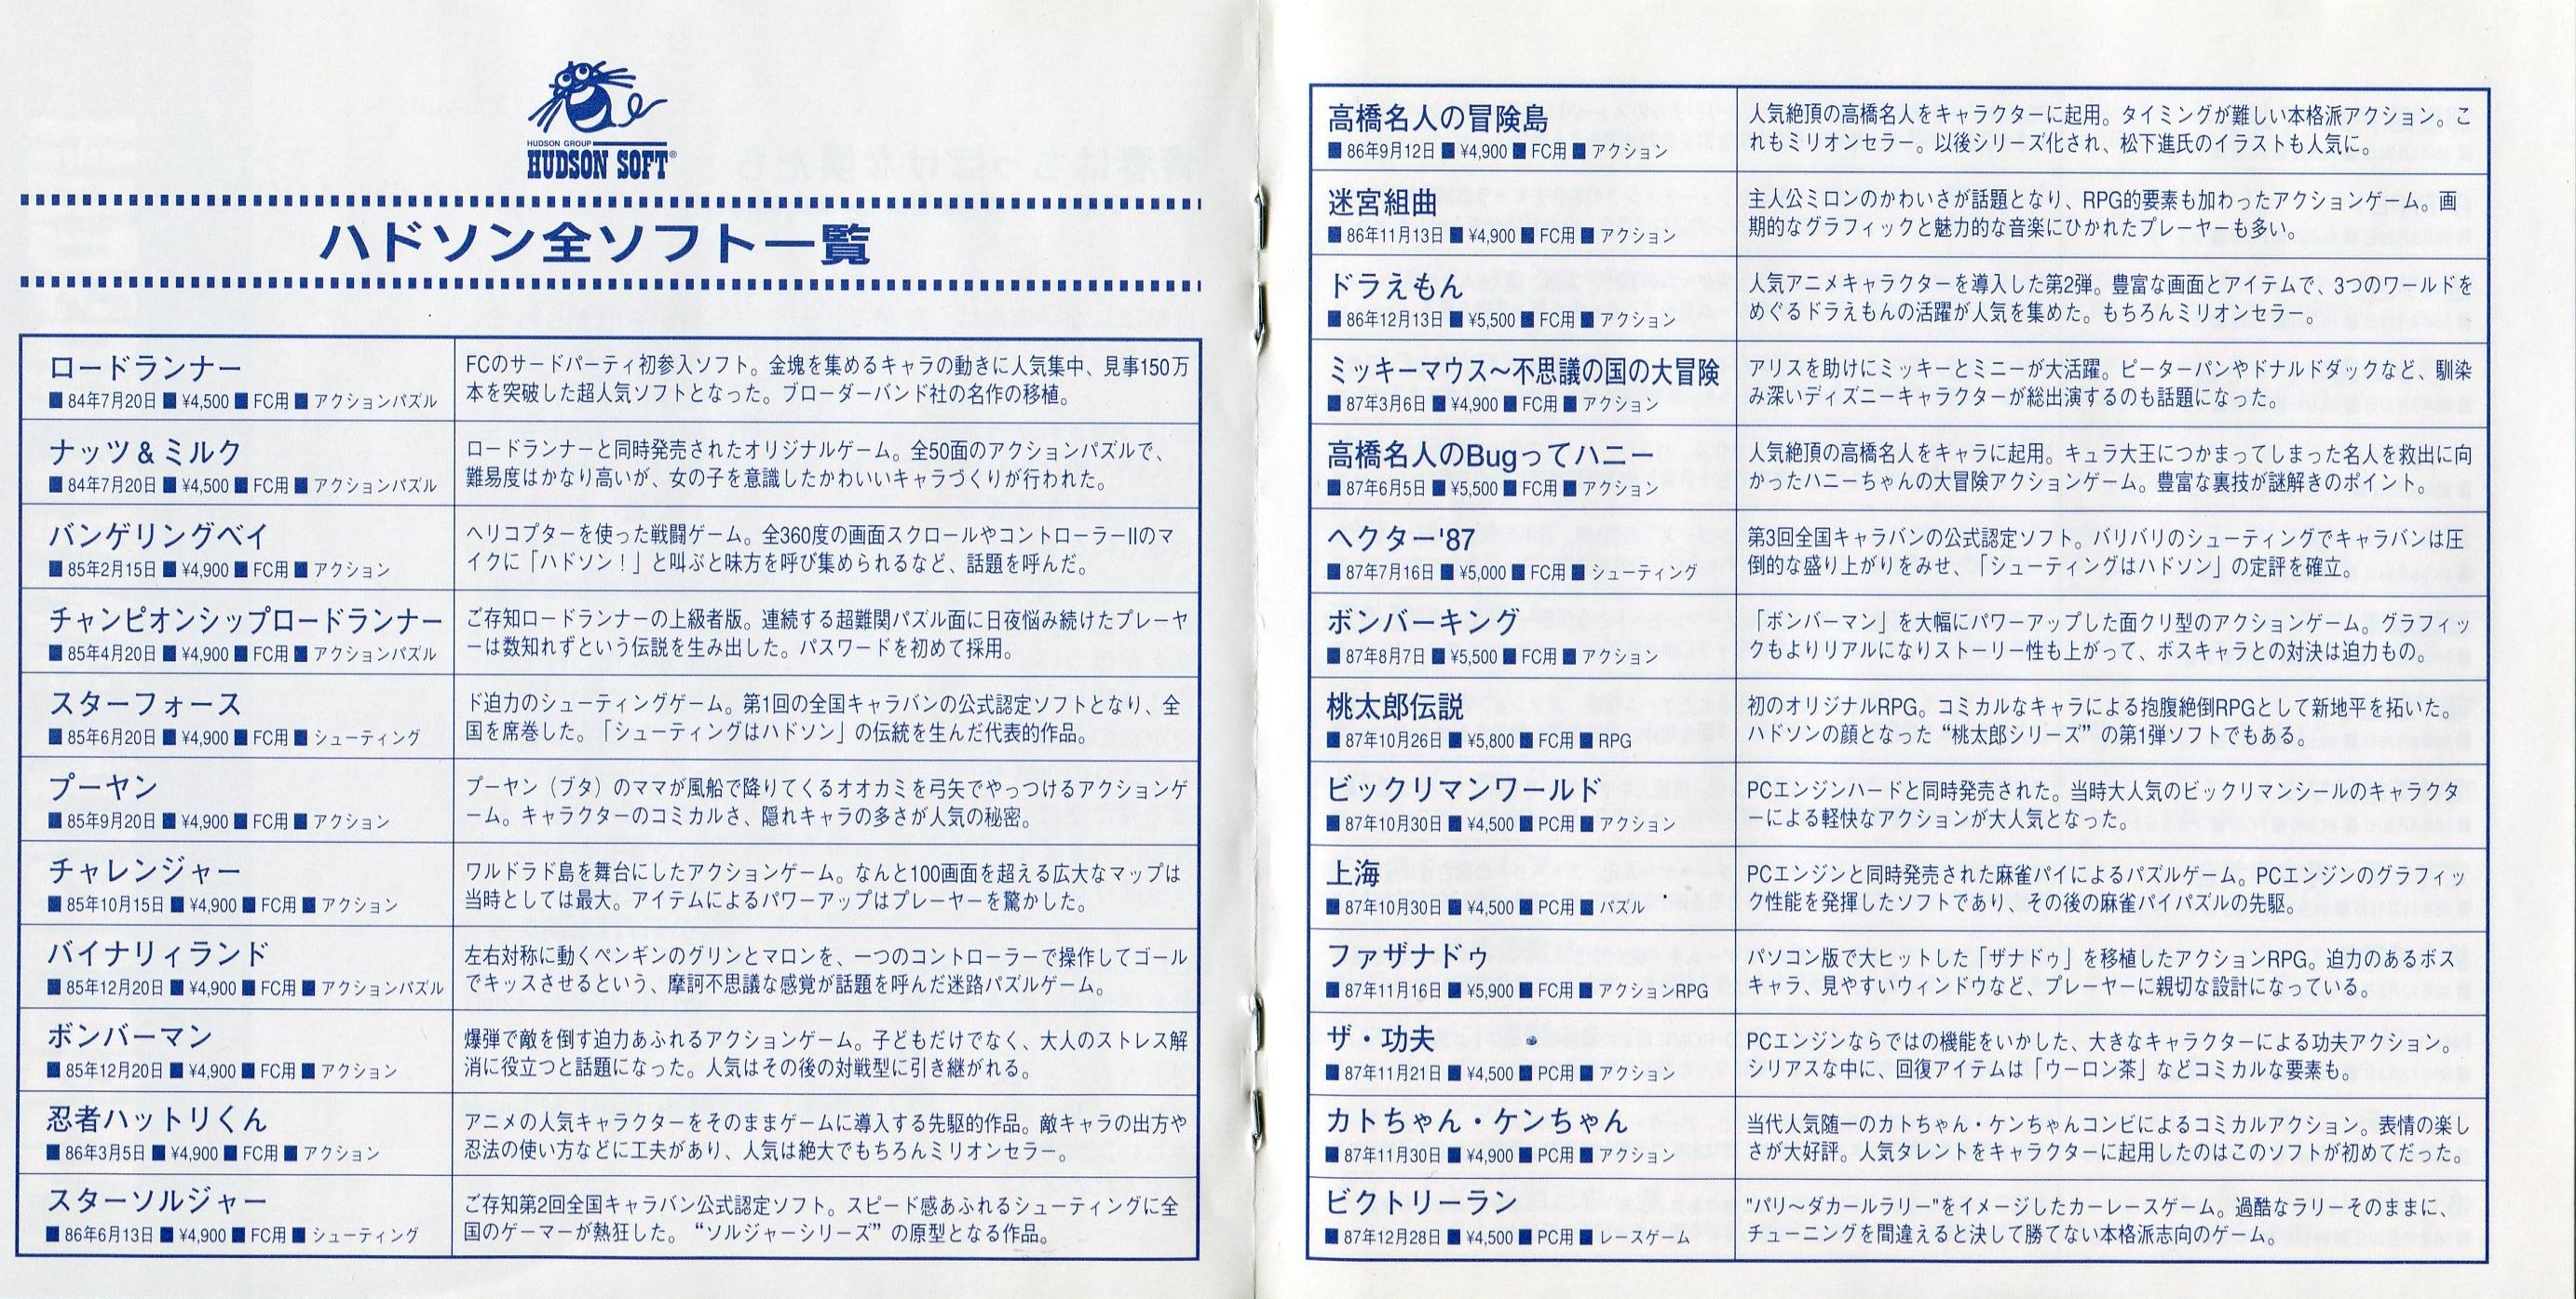 HUDSON GROUP
HUDSON SOFT®
ハドソン全ソフト一覧
ロードランナー
■ 84年7月20日 ■ ¥4,500 ■ FC用 ■ アクションパズル
FCのサードパーティ初参入ソフト。金塊を集めるキャラの動きに人気集中、見事150万
本を突破した超人気ソフトとなった。ブローダーバンド社の名作の移植。
ナッツ＆ミルク
■ 84年7月20日 ■ ¥4,500 ■ FC用 ■ アクションパズル
ロードランナーと同時発売されたオリジナルゲーム。全50面のアクションパズルで、
難易度はかなり高いが、女の子を意識したかわいいキャラづくりが行われた。
バンゲリングベイ
■ 85年2月15日 ■ ¥4,900 ■ FC用 ■ アクション
ヘリコプターを使った戦闘ゲーム。全360度の画面スクロールやコントローラーIIのマ
イクに「ハドソン！」と叫ぶと味方を呼び集められるなど、話題を呼んだ。
チャンピオンシップロードランナー
■ 85年4月20日 ■ ¥4,900 ■ FC用 ■ アクションパズル
ご存知ロードランナーの上級者版。連続する超難関パズル面に日夜悩み続けたプレーヤ
ーは数知れずという伝説を生み出した。パスワードを初めて採用。
スターフォース
■ 85年6月20日 ■ ¥4,900 ■ FC用 ■ シューティング
ド迫力のシューティングゲーム。第1回の全国キャラバンの公式認定ソフトとなり、全
国を席巻した。「シューティングはハドソン」の伝統を生んだ代表的作品。
プーヤン
■ 85年9月20日 ■ ¥4,900 ■ FC用 ■ アクション
プーヤン（ブタ）のママが風船で降りてくるオオカミを弓矢でやっつけるアクションゲ
ーム。キャラクターのコミカルさ、隠れキャラの多さが人気の秘密。
チャレンジャー
■ 85年10月15日 ■ ¥4,900 ■ FC用 ■ アクション
ワルドラド島を舞台にしたアクションゲーム。なんと100画面を超える広大なマップは
当時としては最大。アイテムによるパワーアップはプレーヤーを驚かした。
バイナリィランド
■ 85年12月20日 ■ ¥4,900 ■ FC用 ■ アクションパズル
左右対称に動くペンギンのグリンとマロンを、一つのコントローラーで操作してゴール
でキッスさせるという、摩訶不思議な感覚が話題を呼んだ迷路パズルゲーム。
ボンバーマン
■ 85年12月20日 ■ ¥4,900 ■ FC用 ■ アクション
爆弾で敵を倒す迫力あふれるアクションゲーム。子どもだけでなく、大人のストレス解
消に役立つと話題になった。人気はその後の対戦型に引き継がれる。
忍者ハットリくん
■ 86年3月5日 ■ ¥4,900 ■ FC用 ■ アクション
アニメの人気キャラクターをそのままゲームに導入する先駆的作品。敵キャラの出方や
忍法の使い方などに工夫があり、人気は絶大でもちろんミリオンセラー。
スターソルジャー
■ 86年6月13日 ■ ¥4,900 ■ FC用 ■ シューティング
ご存知第2回全国キャラバン公式認定ソフト。スピード感あふれるシューティングに全
国のゲーマーが熱狂した。“ソルジャーシリーズ”の原型となる作品。
高橋名人の冒険島
■ 86年9月12日 ■ ¥4,900 ■ FC用 ■ アクション
人気絶頂の高橋名人をキャラクターに起用。タイミングが難しい本格派アクション。こ
れもミリオンセラー。以後シリーズ化され、松下進氏のイラストも人気に。
迷宮組曲
■ 86年11月13日 ■ ¥4,900 ■ FC用 ■ アクション
主人公ミロンのかわいさが話題となり、RPG的要素も加わったアクションゲーム。画
期的なグラフィックと魅力的な音楽にひかれたプレーヤーも多い。
ドラえもん
■ 86年12月13日 ■ ¥5,500 ■ FC用 ■ アクション
人気アニメキャラクターを導入した第2弾。豊富な画面とアイテムで、3つのワールドを
めぐるドラえもんの活躍が人気を集めた。もちろんミリオンセラー。
ミッキーマウス～不思議の国の大冒険
■ 87年3月6日 ■ ¥4,900 ■ FC用 ■ アクション
アリスを助けにミッキーとミニーが大活躍。ピーターパンやドナルドダックなど、馴染
み深いディズニーキャラクターが総出演するのも話題になった。
高橋名人のBugってハニー
■ 87年6月5日 ■ ¥5,500 ■ FC用 ■ アクション
人気絶頂の高橋名人をキャラに起用。キュラ大王につかまってしまった名人を救出に向
かったハニーちゃんの大冒険アクションゲーム。豊富な裏技が謎解きのポイント。
ヘクター'87
■ 87年7月16日 ■ ¥5,000 ■ FC用 ■ シューティング
第3回全国キャラバンの公式認定ソフト。バリバリのシューティングでキャラバンは圧
倒的な盛り上がりをみせ、「シューティングはハドソン」の定評を確立。
ボンバーキング
■ 87年8月7日 ■ ¥5,500 ■ FC用 ■ アクション
「ボンバーマン」を大幅にパワーアップした面クリ型のアクションゲーム。グラフィッ
クもよりリアルになりストーリー性も上がって、ボスキャラとの対決は迫力もの。
桃太郎伝説
■ 87年10月26日 ■ ¥5,800 ■ FC用 ■ RPG
初のオリジナルRPG。コミカルなキャラによる抱腹絶倒RPGとして新地平を拓いた。
ハドソンの顔となった“桃太郎シリーズ”の第1弾ソフトでもある。
ビックリマンワールド
■ 87年10月30日 ■ ¥4,500 ■ PC用 ■ アクション
PCエンジンハードと同時発売された。当時大人気のビックリマンシールのキャラクタ
ーによる軽快なアクションが大人気となった。
上海
■ 87年10月30日 ■ ¥4,500 ■ PC用 ■ パズル
PCエンジンと同時発売された麻雀パイによるパズルゲーム。PCエンジンのグラフィッ
ク性能を発揮したソフトであり、その後の麻雀パイパズルの先駆。
ファザナドゥ
■ 87年11月16日 ■ ¥5,900 ■ FC用 ■ アクションRPG
パソコン版で大ヒットした「ザナドゥ」を移植したアクションRPG。迫力のあるボス
キャラ、見やすいウィンドウなど、プレーヤーに親切な設計になっている。
ザ・功夫
■ 87年11月21日 ■ ¥4,500 ■ PC用 ■ アクション
PCエンジンならではの機能をいかした、大きなキャラクターによる功夫アクション。
シリアスな中に、回復アイテムは「ウーロン茶」などコミカルな要素も。
カトちゃん・ケンちゃん
■ 87年11月30日 ■ ¥4,900 ■ PC用 ■ アクション
当代人気随一のカトちゃん・ケンちゃんコンビによるコミカルアクション。表情の楽し
さが大好評。人気タレントをキャラクターに起用したのはこのソフトが初めてだった。
ビクトリーラン
■ 87年12月28日 ■ ¥4,500 ■ PC用 ■ レースゲーム
"パリ～ダカールラリー"をイメージしたカーレースゲーム。過酷なラリーそのままに、
チューニングを間違えると決して勝てない本格派志向のゲーム。